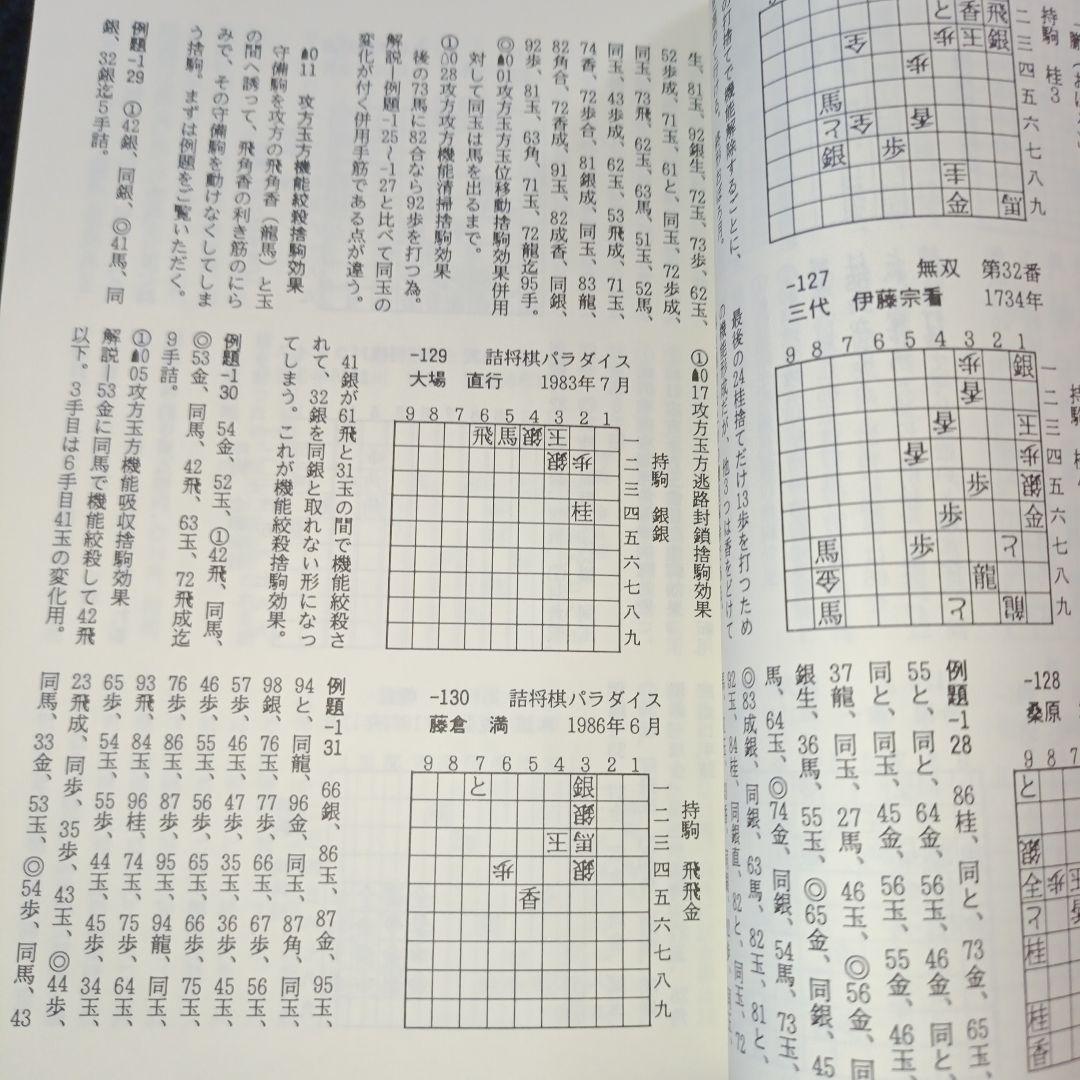 持駒 桂3
-127 無双 第32番
三代 伊藤宗看 1734年
9 8 7 6 5 4 3 2 1
一二三四五六七八九
最後の24桂捨てだけ13歩を打つため
-128
桑原
例題-128 86桂、同と、73金、65玉、
55と、同と、64金、56玉、46金、同と、
同と、同玉、45金、56玉、55金、46玉、
37龍、同玉、27馬、46玉、◎56金、
銀生、36馬、55玉、◎65金、同銀、45
馬、64玉、◎74金、同銀、54馬、73玉、
◎83成銀、同銀、63馬、82玉、81と、
生、81玉、92銀生、72玉、73歩、62玉、
52歩成、71玉、61と、同玉、72歩成、
同玉、73飛、62玉、63馬、51玉、52馬、
同玉、43歩成、62玉、53飛成、71玉、
74香、72歩合、81銀成、同玉、83龍、
82角合、72香成、91玉、82成香、同銀、
92歩、81玉、63角、71玉、72龍迄95手。
◎▲01攻方玉方玉位移動捨駒効果併用
対して同玉は馬を出るまで。
①△028攻方攻方機能清掃捨駒効果
後の73馬に82合なら92歩を打つ為。
解説―例題-125~-127と比べて同玉の
変化が付く併用手筋である点が違う。
▲011 攻方玉方機能絞殺捨駒効果
守備駒を攻方の飛角香（龍馬）と玉
の間へ誘って、飛角香の利き筋のにら
みで、その守備駒を動けなくしてしま
う捨駒。まずは例題をご覧いただく。
例題-129 ①42銀、同銀、◎41馬、同
銀、32銀迄5手詰。
①▲017攻方玉方逃路封鎖捨駒効果
-129 詰将棋パラダイス
大場 直行 1983年7月
9 8 7 6 5 4 3 2 1
飛 馬 銀 王
銀 歩
桂
一二三四五六七八九
持駒 銀銀
41銀が61飛と31玉の間で機能絞殺さ
れて、32銀を同銀と取れない形になっ
てしまう。これが機能絞殺捨駒効果。
例題-130 54金、52玉、①42飛、同玉、
◎53金、同馬、42飛、63玉、72飛成迄
9手詰。
①▲05攻方玉方機能吸収捨駒効果
解説―53金に同馬で機能絞殺して42飛
以下。3手目は6手目41玉の変化用。
-130 詰将棋パラダイス
藤倉 満 1986年6月
9 8 7 6 5 4 3 2 1
と 銀
銀
王 馬
歩 銀
香
一二三四五六七八九
持駒 飛飛金
例題-131 66銀、86玉、87金、95玉、
94と、同龍、96金、同玉、87角、同玉、
98銀、76玉、77歩、66玉、67歩、56玉、
57歩、46玉、47歩、35玉、36歩、45玉、
46歩、55玉、56歩、65玉、66歩、75玉、
76歩、86玉、87歩、95玉、94龍、同玉、
93飛、84玉、96桂、74玉、75歩、64玉、
65歩、54玉、55歩、44玉、45歩、34玉、
23飛成、同歩、35歩、43玉、◎44歩、
同馬、33金、53玉、◎54歩、同馬、43